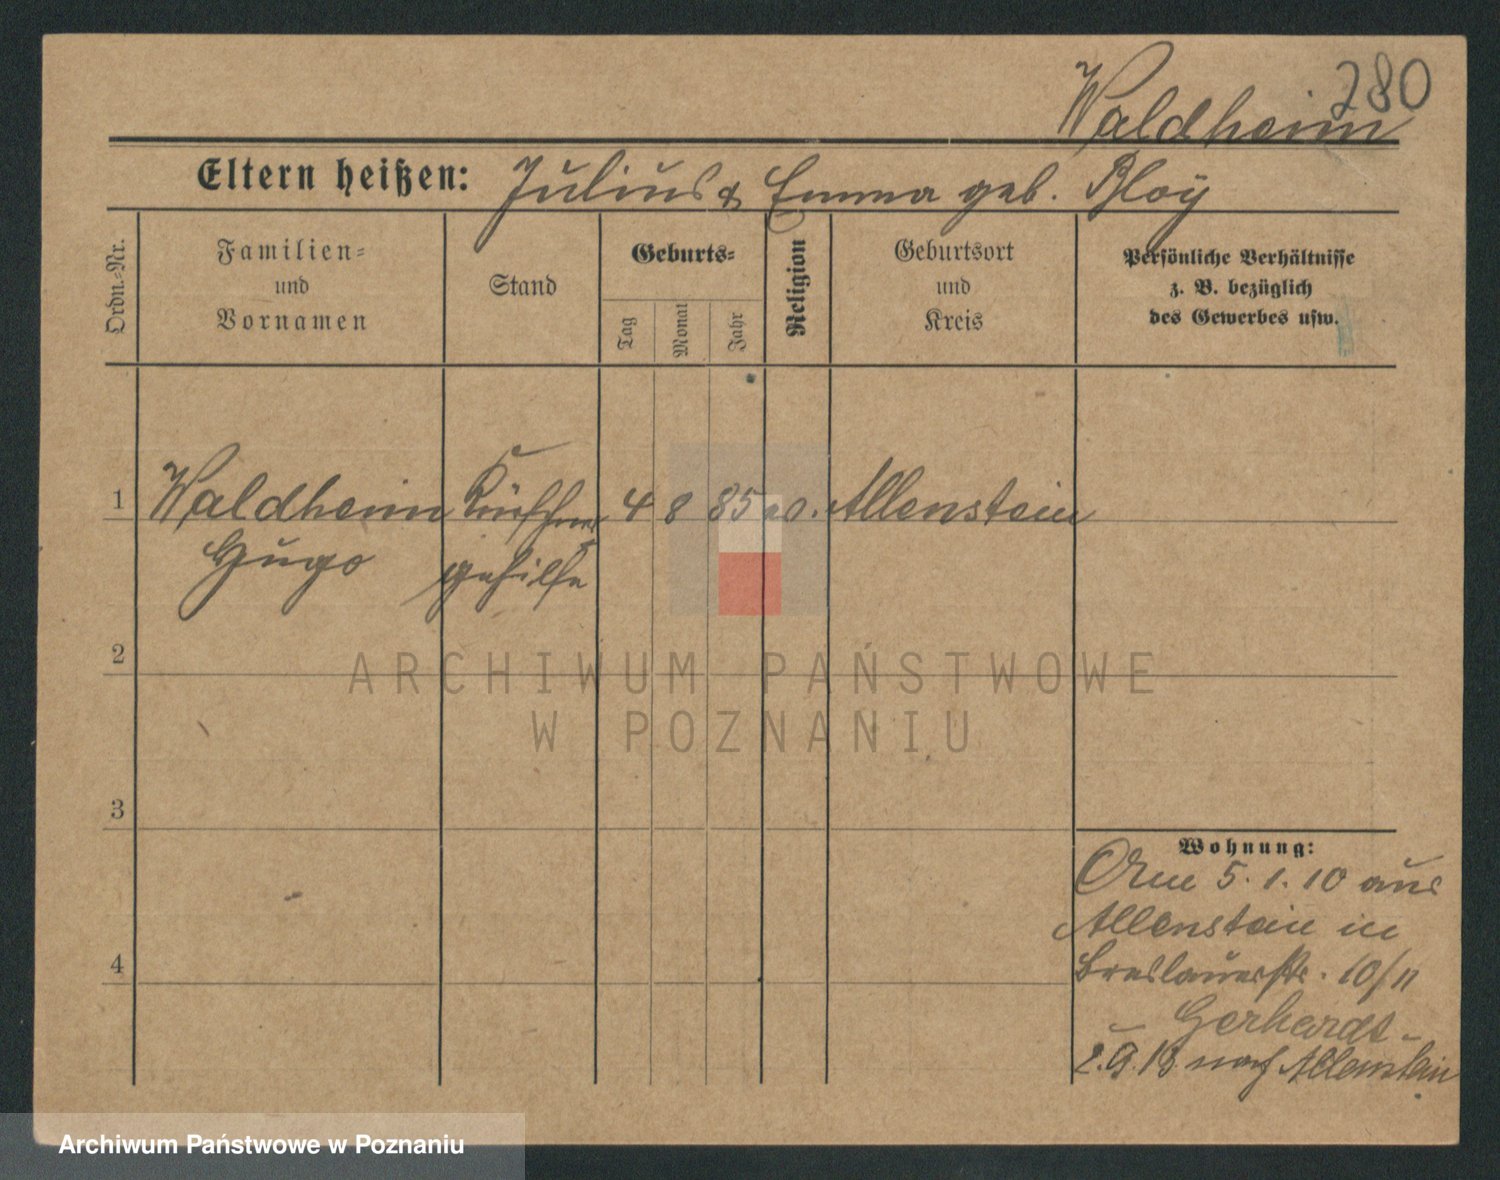 280
Waldheim
Eltern heißen: Julius & Emma geb. Bloy
Ordn.-Nr.
Familien- und Vornamen
Stand
Geburts-
Tag
Monat
Jahr
Religion
Geburtsort und Kreis
Persönliche Verhältnisse
z. B. bezüglich
des Gewerbes usw.
1 Waldheim Kürschner 4 8 85 ev. Allenstein
Hugo gehilfe
2
3
4
Wohnung:
5.1.10 aus
Allenstein in
Breslauerstr. 10/II
Gerhardt
2.9.13 nach Allenstein
ARCHIWUM PAŃSTWOWE
W POZNANIU
Archiwum Państwowe w Poznaniu